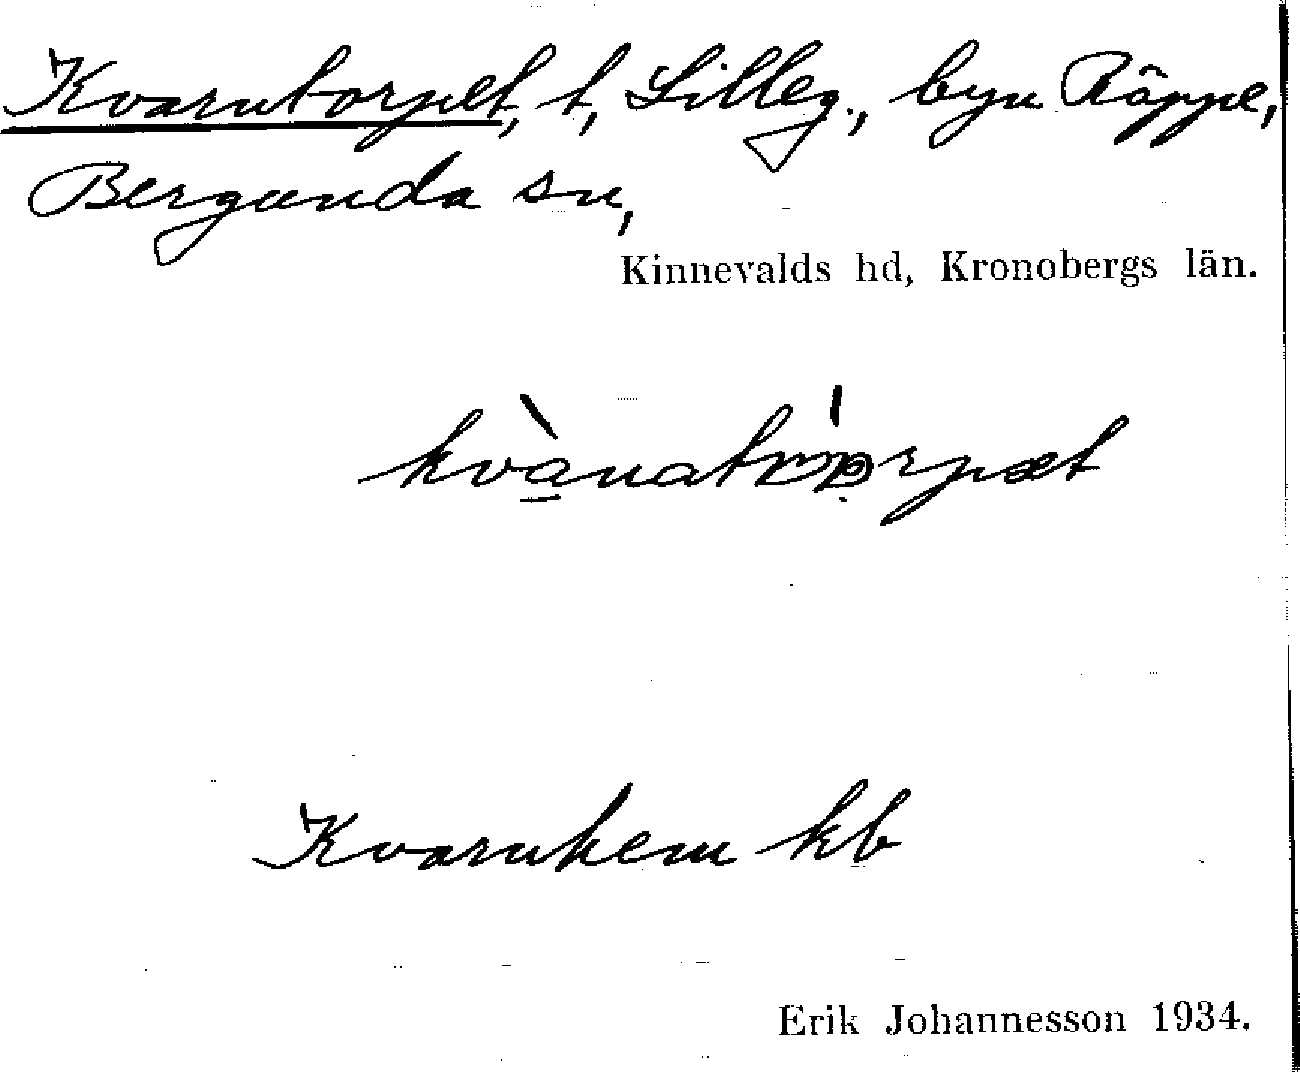 Kvarntorpet, t, Lilleg., byn Räppe,
Bergunda sn,
Kinnevalds hd, Kronobergs län.
Kvarnhem kb
Erik Johannesson 1934.